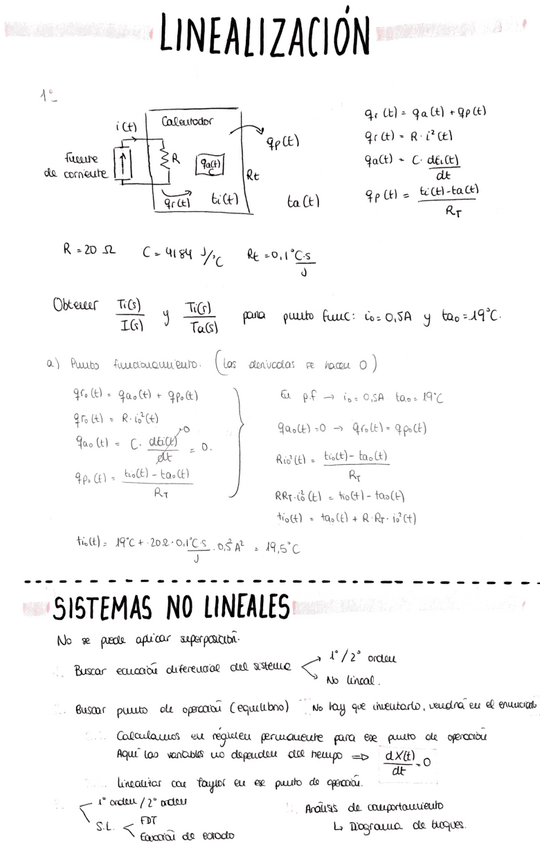 LINEALIZACIÓN
1º
i(t)
Calentador
qp(t)
fuente
de corriente
R
qa(t)
C
Rt
qr(t)
ti(t)
ta(t)
qr(t) = qa(t) + qp(t)
qr(t) = R · i²(t)
qa(t) = C · dti(t)/dt
qp(t) = ti(t)-ta(t)/RT
R = 20 Ω C = 4184 J/°C Rt = 0,1 °C·s/J
Obtener Ti(s)/I(s) y Ti(s)/Ta(s) para punto func: io = 0,5A y tao = 19°C.
a) Punto funcionamiento. (Las derivadas se hacen 0)
qro(t) = qao(t) + qpo(t)
qro(t) = R · io²(t)
qao(t) = C · dti(t)/dt → 0 = 0.
qpo(t) = tio(t) - tao(t)/RT
En p.f → io = 0,5A tao = 19°C
qao(t) = 0 → qro(t) = qpo(t)
Rio²(t) = tio(t) - tao(t)/RT
RRT · io²(t) = tio(t) - tao(t)
tio(t) = tao(t) + R · RT · io²(t)
tio(t) = 19°C + 20Ω · 0,1 °C·s/J · 0,5² A² = 19,5°C
SISTEMAS NO LINEALES
No se puede aplicar superposición.
Buscar ecuación diferencial del sistema
1º / 2º orden
No lineal.
Buscar punto de operación (equilibrio) No hay que inventarlo, vendrá en el enunciado
Calculamos en régimen permanente para ese punto de operación
Aquí las variables no dependen del tiempo ⇒ dX(t)/dt = 0
Linealizar con Taylor en ese punto de operación.
S.L.
1º orden / 2º orden
FDT
Ecuación de estado
Análisis de comportamiento
↳ Diagrama de bloques.